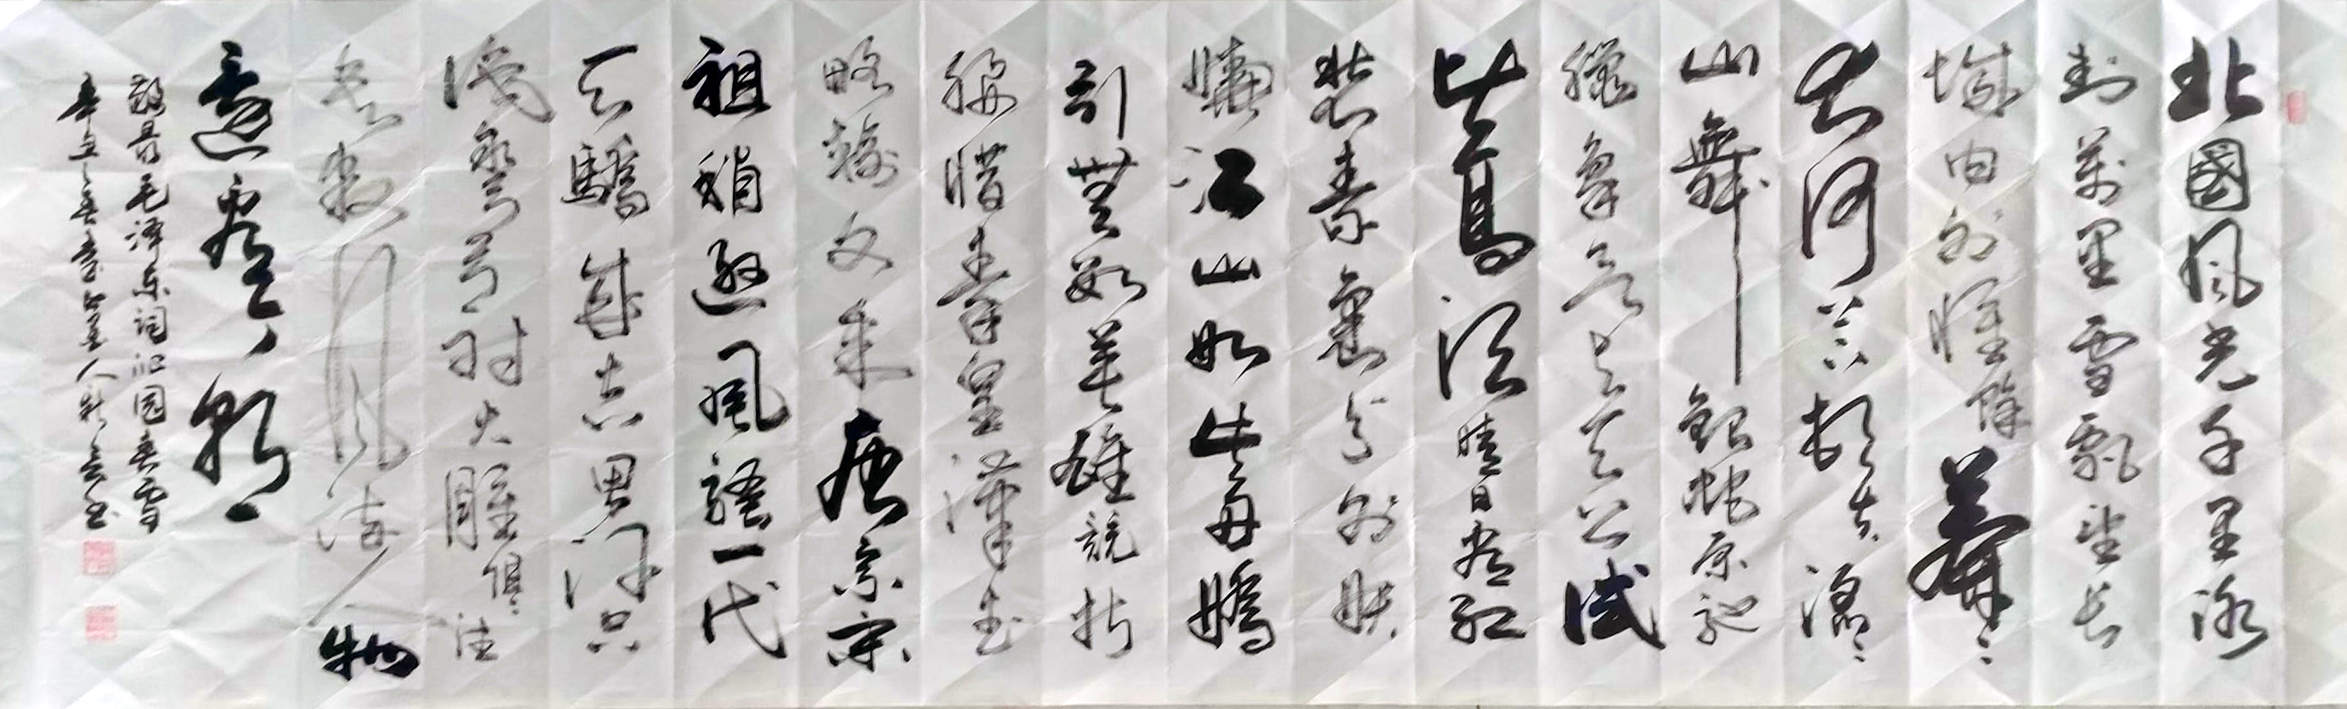 北國風光千里冰
封萬里雪飄望長
城内外惟餘莽〻
大河上下頓失滔〻
山舞銀蛇原馳
蠟象欲与天公試
比高須晴日看紅
裝素裹分外妖
嬈江山如此多嬌
引無數英雄競折
腰惜秦皇漢武
略輸文采唐宗宋
祖稍遜風騷一代
天驕成吉思汗只
識彎弓射大雕俱〻往
矣數風流人物
還看今朝
敬录毛泽东词沁园春雪
辛丑之春